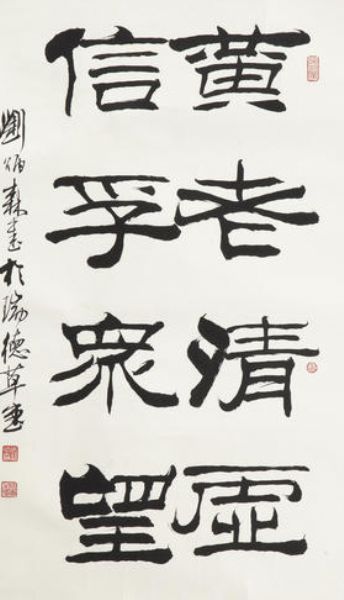 黄老清虚
信孚眾望
劉炳森書於瑞德草堂